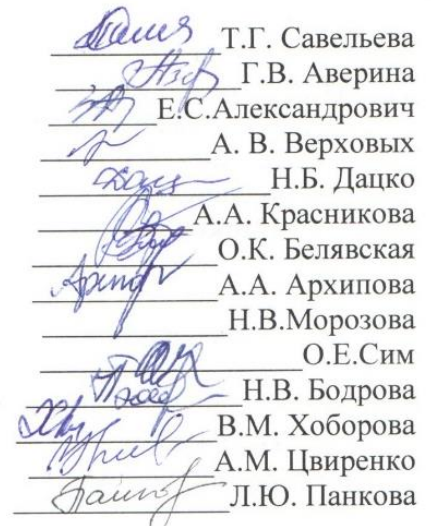 Т.Г. Савельева
Г.В. Аверина
Е.С.Александрович
А. В. Верховых
Н.Б. Дацко
А.А. Красникова
О.К. Белявская
А.А. Архипова
Н.В.Морозова
О.Е.Сим
Н.В. Бодрова
В.М. Хоборова
А.М. Цвиренко
Л.Ю. Панкова